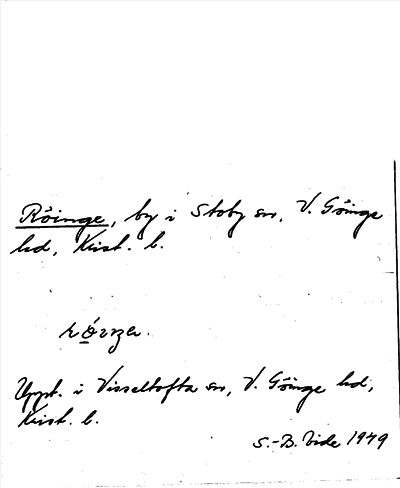 Röinge, by i Stoby sn, V. Göinge
hd, Krist. l.
Uppt. i Visseltofta sn, V. Göinge hd,
Krist. l.
S.-B. Vide 1949